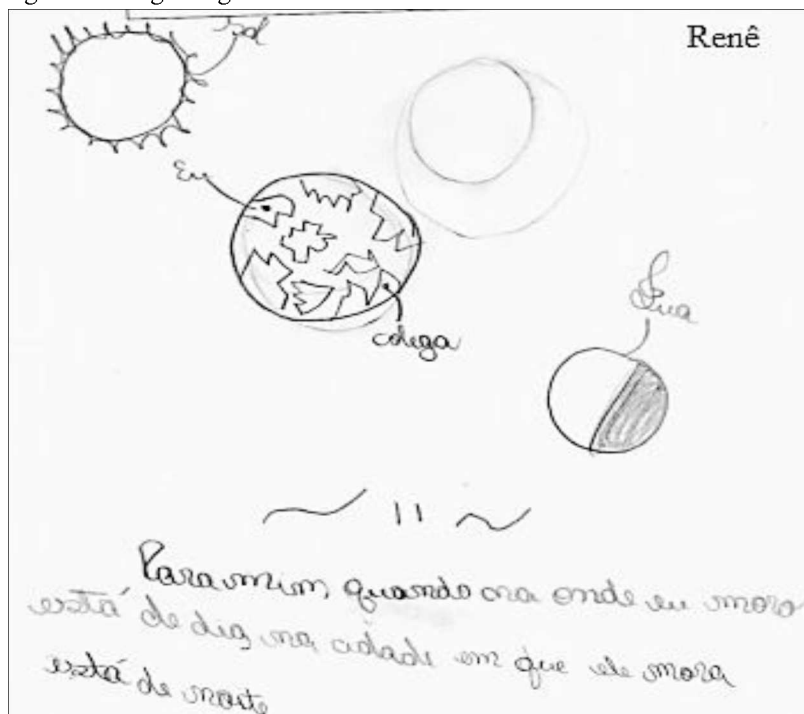 Renê
Sol
Eu
Lua
colega
Para mim, quando na onde eu moro
está de dia, na cidade em que ele mora
está de noite